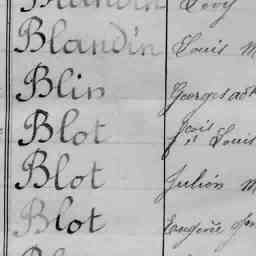 Blandin Louis M
Blin Georges ad
Blot Louis
Blot Julien M
Blot Eugène